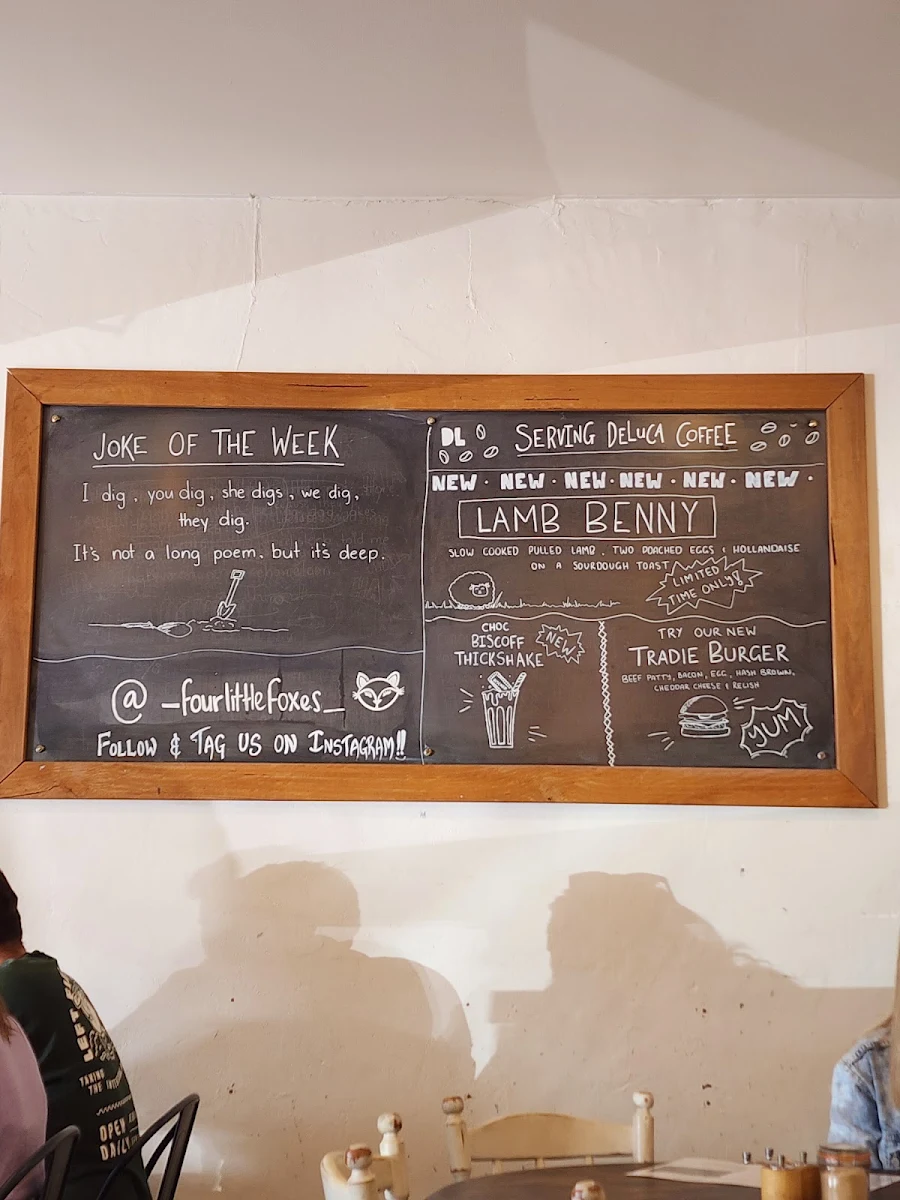 JOKE OF THE WEEK
I dig, you dig, she digs, we dig,
they dig.
It's not a long poem, but it's deep.
@ _fourlittlefoxes_
FOLLOW & TAG US ON INSTAGRAM!!
DL SERVING DELUCA COFFEE
NEW · NEW · NEW · NEW · NEW · NEW ·
LAMB BENNY
SLOW COOKED PULLED LAMB, TWO POACHED EGGS & HOLLANDAISE
ON A SOURDOUGH TOAST
LIMITED
TIME ONLY!
CHOC
BISCOFF
THICKSHAKE
NEW
TRY OUR NEW
TRADIE BURGER
BEEF PATTY, BACON, EGG, HASH BROWN,
CHEDDAR CHEESE & RELISH
YUM
LEFT
TAKING
THE
OPEN
DAILY